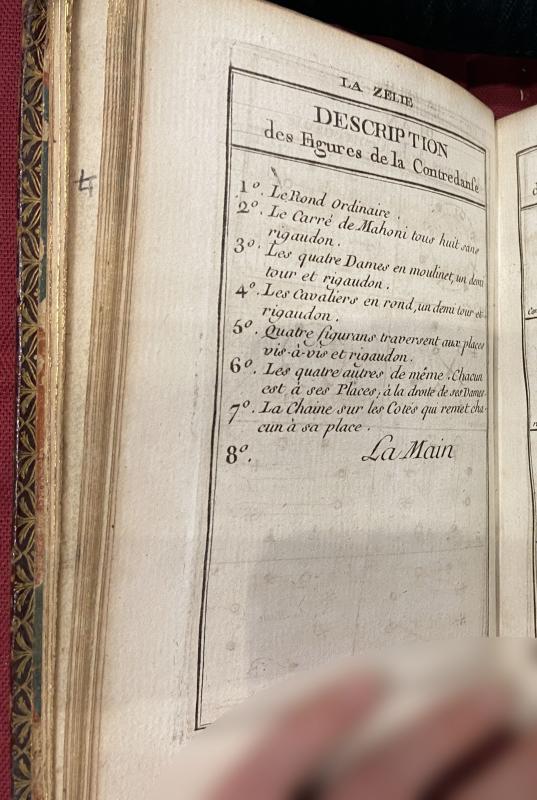 LA ZELIE
DESCRIPTION
des Figures de la Contredanse
1º. Le Rond Ordinaire.
2º. Le Carré de Mahoni tous huit sans
rigaudon.
3º. Les quatre Dames en moulinet, un demi
tour et rigaudon.
4º. Les Cavaliers en rond, un demi tour et
rigaudon.
5º. Quatre figurans traversent aux places
vis-à-vis et rigaudon.
6º. Les quatre autres de même. Chacun
est à ses Places, à la droite de ses Dames
7º. La Chaine sur les Cotés qui remet cha-
cun à sa place.
8º. La Main